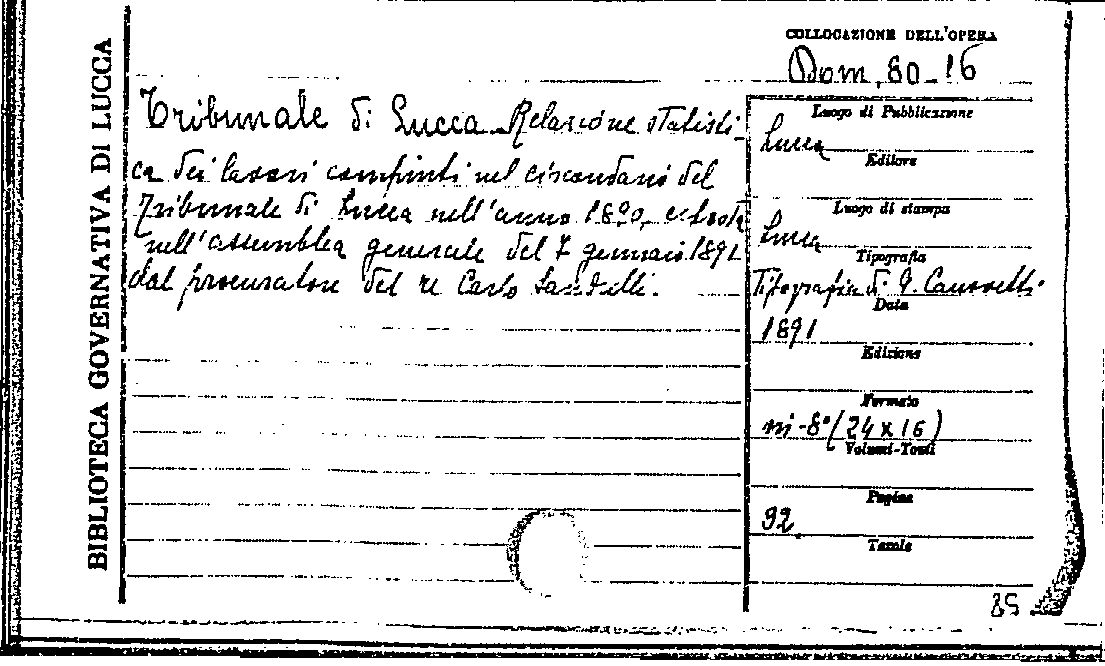 BIBLIOTECA GOVERNATIVA DI LUCCA
COLLOCAZIONE DELL'OPERA
Dom. 80-16
Tribunale di Lucca Relazione statisti-
ca dei lavori compiuti nel circondario del
Tribunale di Lucca nell'anno 1890, esposta
nell'assemblea generale del 7 gennaio 1891
dal procuratore del re Carlo
Luogo di Pubblicazione
Lucca
Editore
Luogo di stampa
Lucca
Tipografia
Tipografia di G. Canovetti
Data
1891
Edizione
Formato
in-8° (24 x 16)
Volumi-Tomi
Pagine
92
Tavole
85